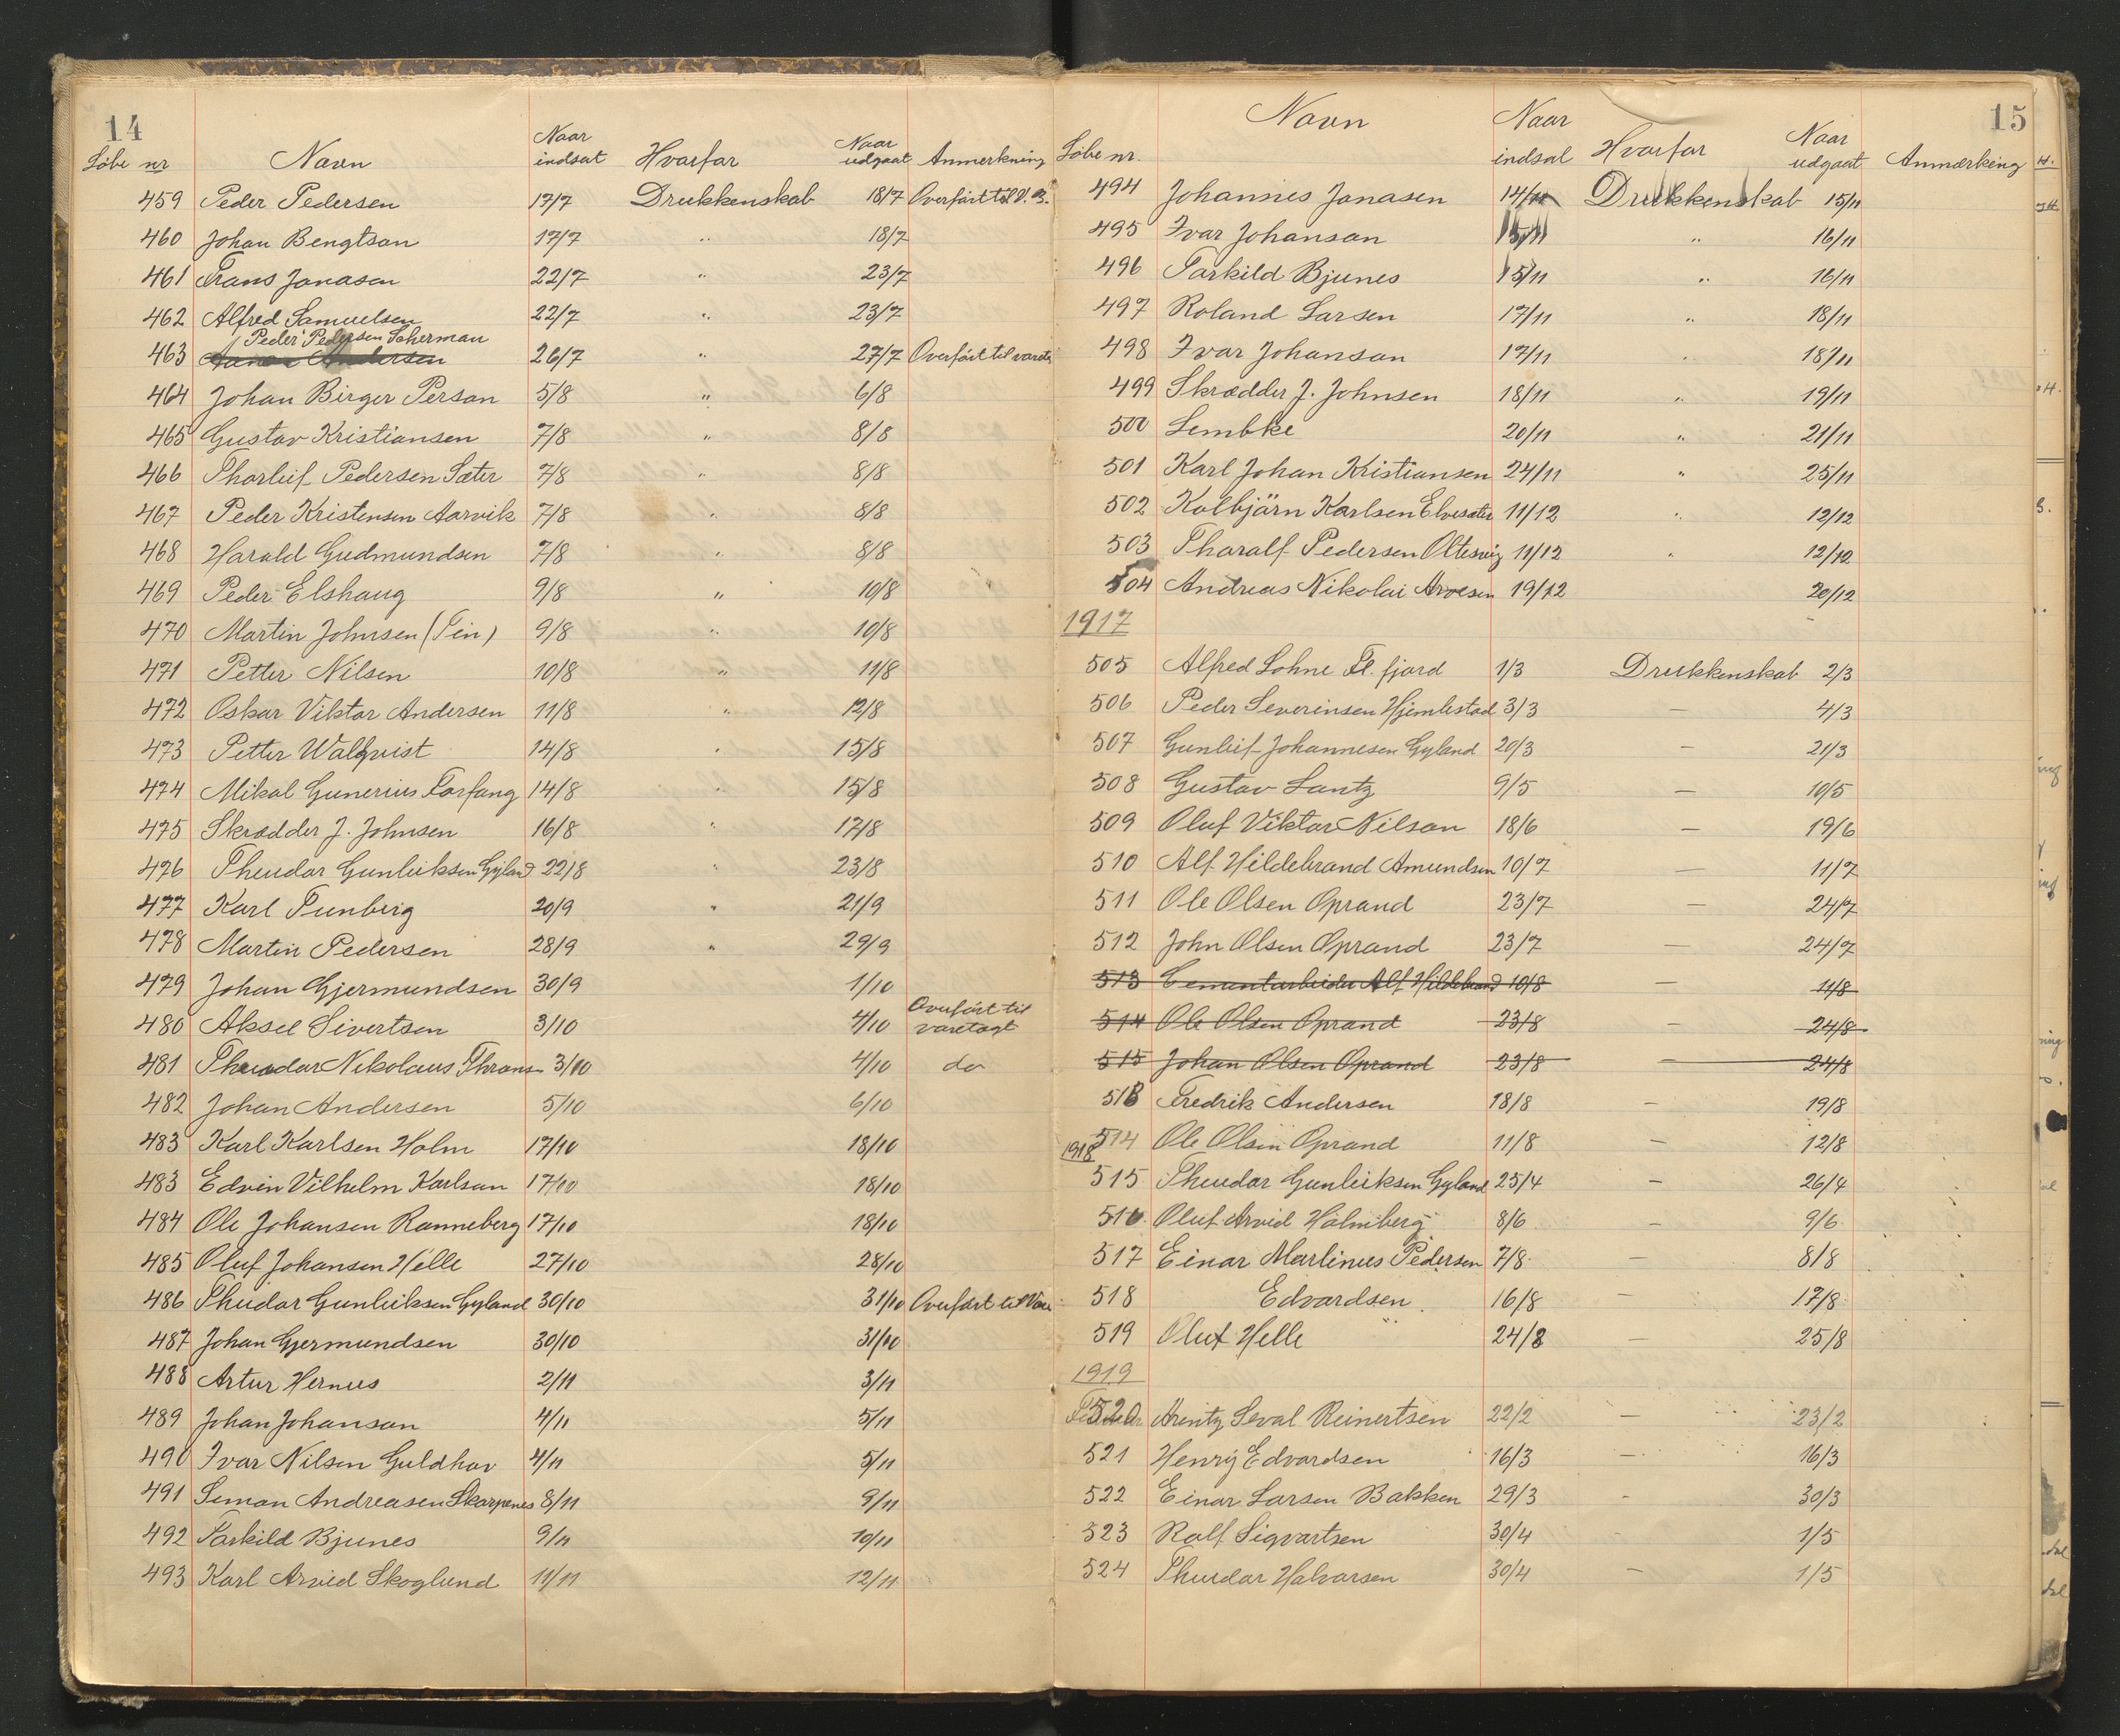 14
Løbe nr Navn Naar indsat Hvorfor Naar udgaat Anmerkning
459 Peder Pedersen 17/7 Drukkenskab 18/7 Overført til V. A.
460 Johan Bengtson 17/7 " 18/7
461 Frans Jonason 22/7 " 23/7
462 Alfred Samuelsen 22/7 " 23/7
Peder Pedersen Scherman
463 Andersen 26/7 " 27/7 Overført til varetr
464 Johan Birger Person 5/8 " 6/8
465 Gustav Kristiansen 7/8 " 8/8
466 Thorleif Pedersen Sæter 7/8 " 8/8
467 Peder Kristensen Aarvik 7/8 " 8/8
468 Harald Gudmundsen 7/8 " 8/8
469 Peder Elshaug 9/8 " 10/8
470 Martin Johnsen (Pin) 9/8 " 10/8
471 Petter Nilsen 10/8 " 11/8
472 Oskar Viktor Andersen 11/8 " 12/8
473 Petter Walqvist 14/8 " 15/8
474 Mikal Gunerius Forfang 14/8 " 15/8
475 Skrædder J. Johnsen 16/8 " 17/8
476 Theodor Gunleiksen Gyland 22/8 " 23/8
477 Karl Tunberg 20/9 " 21/9
478 Martin Pedersen 28/9 " 29/9
479 Johan Gjermundsen 30/9 1/10
480 Aksel Sivertsen 3/10 4/10 Overført til varetægt
481 Theodor Nikolaus Thrans 3/10 4/10 do
482 Johan Andersen 5/10 6/10
483 Karl Karlsen Holm 17/10 18/10
483 Edvin Vilhelm Karlson 17/10 18/10
484 Ole Johansen Ranneberg 17/10 18/10
485 Oluf Johansen Helle 27/10 28/10
486 Theodor Gunleiksen Gyland 30/10 31/10 Overført til Vare
487 Johan Gjermundsen 30/10 31/10
488 Artur Hernes 2/11 3/11
489 Johan Johanson 4/11 5/11
490 Ivar Nilsen Guldhav 4/11 5/11
491 Simon Andreasen Skarpenes 8/11 9/11
492 Torkild Bjunes 9/11 10/11
493 Karl Arvid Skoglund 11/11 12/11
15
Løbe nr. Navn Naar indsat Hvorfor Naar udgaat Anmærkning
494 Johannes Jonasen 14/11 Drukkenskab 15/11
495 Ivar Johanson 15/11 " 16/11
496 Torkild Bjunes 15/11 " 16/11
497 Roland Larsen 17/11 " 18/11
498 Ivar Johanson 17/11 " 18/11
499 Skrædder J. Johnsen 18/11 " 19/11
500 Lembke 20/11 " 21/11
501 Karl Johan Kristiansen 24/11 " 25/11
502 Kolbjørn Karlsen Elvesæter 11/12 " 12/12
503 Tharalf Pedersen Oltesvig 11/12 " 12/12
504 Andreas Nikolai Aroesen 19/12 20/12
1917
505 Alfred Lohne Fl. fjord 1/3 Drukkenskab 2/3
506 Peder Severinsen Hjemlestad 3/3 — 4/3
507 Gunleif Johannesen Gyland 20/3 — 21/3
508 Gustav Lantz 9/5 — 10/5
509 Oluf Viktor Nilson 18/6 — 19/6
510 Alf Hildebrand Amundsen 10/7 — 11/7
511 Ole Olsen Oprand 23/7 — 24/7
512 John Olsen Oprand 23/7 — 24/7
513 Cementarbeider Alf Hildebrand 10/8 — 11/8
514 Ole Olsen Oprand 23/8 — 24/8
515 Johan Olsen Oprand 23/8 — 24/8
513 Fredrik Andersen 18/8 — 19/8
514 Ole Olsen Oprand 11/8 — 12/8
1918
515 Theodor Gunleiksen Gyland 25/4 — 26/4
516 Oluf Arvid Holmberg 8/6 — 9/6
517 Einar Martinus Pedersen 7/8 — 8/8
518 Edvardsen 16/8 — 17/8
519 Oluf Helle 24/8 — 25/8
1919
520 Arentz Seval Reinertsen 22/2 — 23/2
521 Henry Edvardsen 16/3 — 16/3
522 Einar Larsen Bakken 29/3 - 30/3
523 Ralf Sigvartsen 30/4 1/5
524 Theodor Halvorsen 30/4 — 1/5